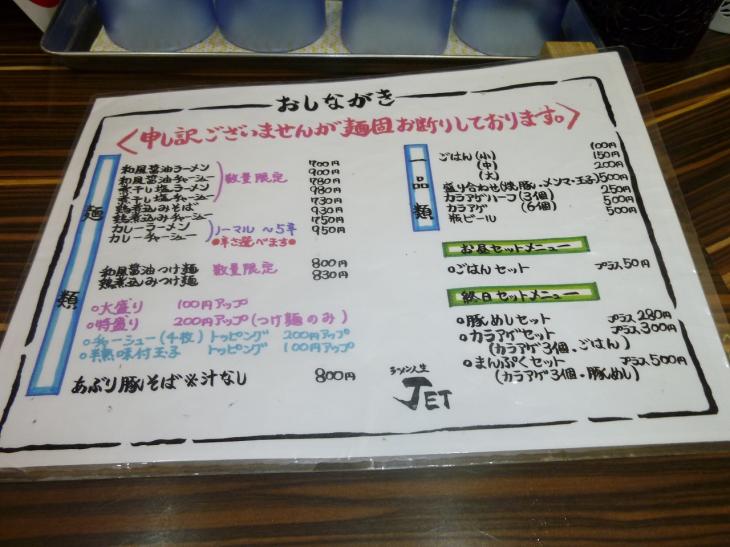 おしながき
<申し訳ございませんが麺固お断りしております。>
麺類
和風醤油ラーメン 700円
和風醤油チャーシュー 900円
煮干し塩ラーメン 780円
煮干し塩チャーシュー 980円
数量限定
鶏煮込みそば 730円
鶏煮込みチャーシュー 930円
カレーラーメン 750円
カレーチャーシュー 950円
ノーマル〜5辛
●辛さ選べます●
和風醤油つけ麺 数量限定 800円
鶏煮込みつけ麺 830円
○大盛り 100円アップ
○特盛り 200円アップ(つけ麺のみ)
○チャーシュー(4枚)トッピング 200円アップ
○半熟味付玉子 トッピング 100円アップ
あぶり豚そば※汁なし 800円
一品類
ごはん(小) 100円
(中) 150円
(大) 200円
盛り合わせ(焼豚・メンマ・玉子) 500円
カラアゲハーフ(3個) 250円
カラアゲ (6個) 500円
瓶ビール 500円
お昼セットメニュー
○ごはんセット プラス50円
終日セットメニュー
○豚めしセット プラス280円
○カラアゲセット プラス300円
(カラアゲ3個・ごはん)
○まんぷくセット プラス500円
(カラアゲ3個・豚めし)
ラーメン人生
JET